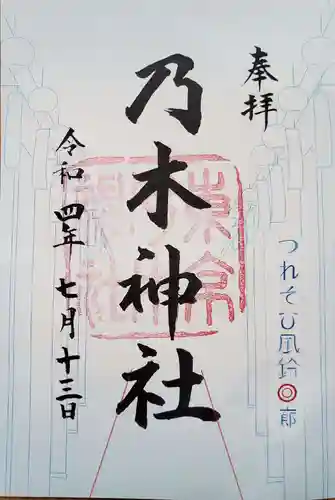 奉拝
つれそひ風鈴◎郷
乃木神社
令和四年七月十三日